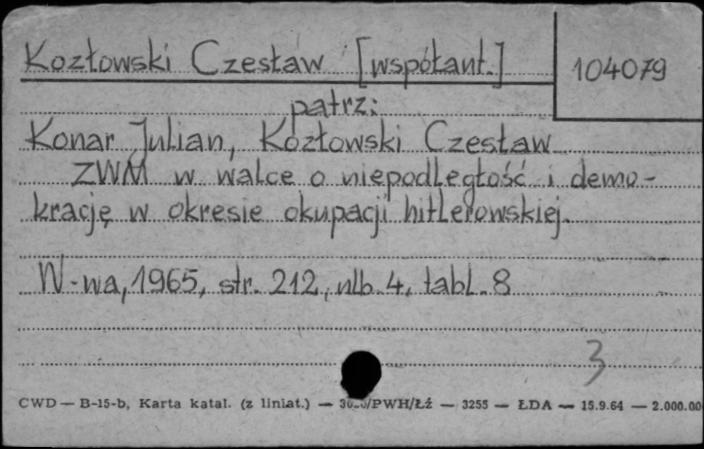 Kozłowski Czesław [współaut.]
104079
patrz:
Konar Julian, Kozłowski Czesław
ZWM w walce o niepodległość i demo-
krację w okresie okupacji hitlerowskiej.
W-wa, 1965, str. 212, nlb. 4, tabl. 8
3
CWD — B-15-b, Karta katal. (z liniat.) — /PWH/Łź — 3255 — ŁDA — 15.9.64 — 2.000.00